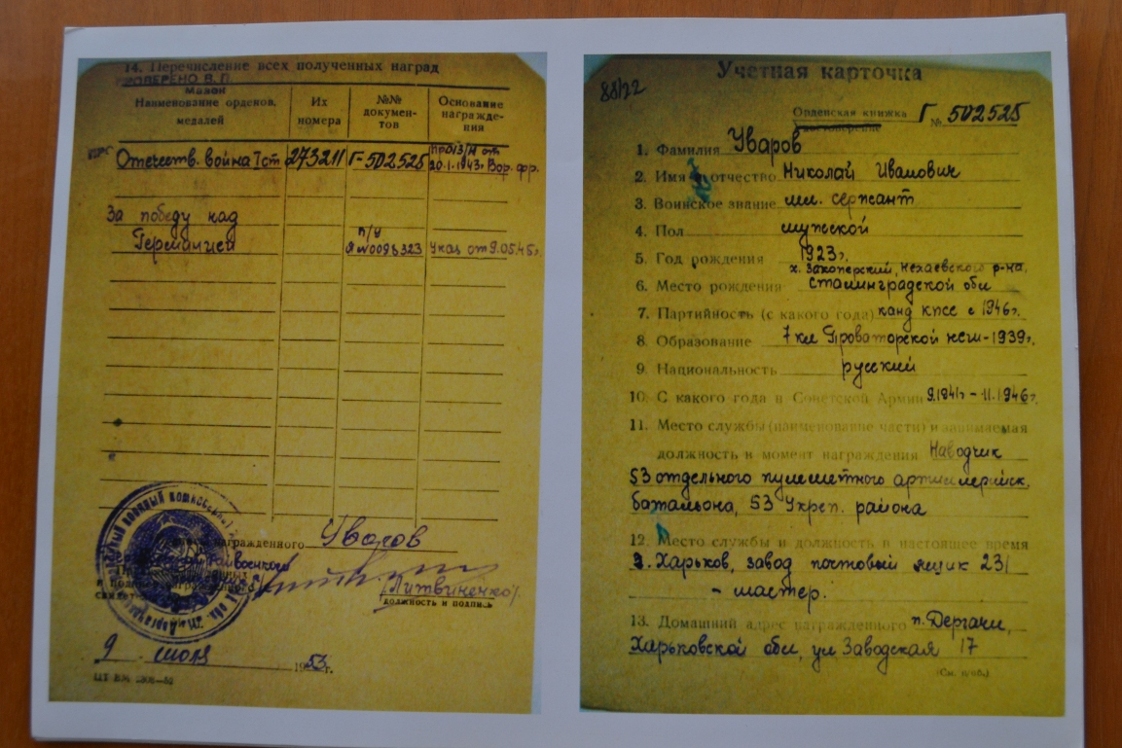 14. Перечисление всех полученных наград
Наименование орденов, медалей
Их номера
№№ докумен-тов
Основание награжде-ния
Отечеств. война I ст 273211 Г-502525 пр 013/Н от 20.1.1943г Вор. фр.
За победу над
Германией
п/у
Я №0096323 Указ от 9.05.45г.
награжденного Уваров
(Литвиненко)
должность и подпись
9 июля 1953 г.
88/22
Учетная карточка
Орденская книжка Г № 502525
1. Фамилия Уваров
2. Имя и отчество Николай Иванович
3. Воинское звание мл. сержант
4. Пол мужской
5. Год рождения 1923г.
х. Закоперский, Нехаевского р-на,
6. Место рождения Сталинградской обл
7. Партийность (с какого года) канд кпсс с 1946г.
8. Образование 7 кл нсш-1939г.
9. Национальность русский
10. С какого года в Советской Армии 9.1941г - 11.1946г.
11. Место службы (наименование части) и занимаемая
должность в момент награждения Наводчик
53 отдельного пулеметного артиллерийск.
батальона, 53 Укреп. района
12. Место службы и должность в настоящее время
г. Харьков, завод почтовый ящик 231
- мастер.
13. Домашний адрес награжденного п. Дергачи,
Харьковской обл, ул Заводская 17
(См. н/об.)